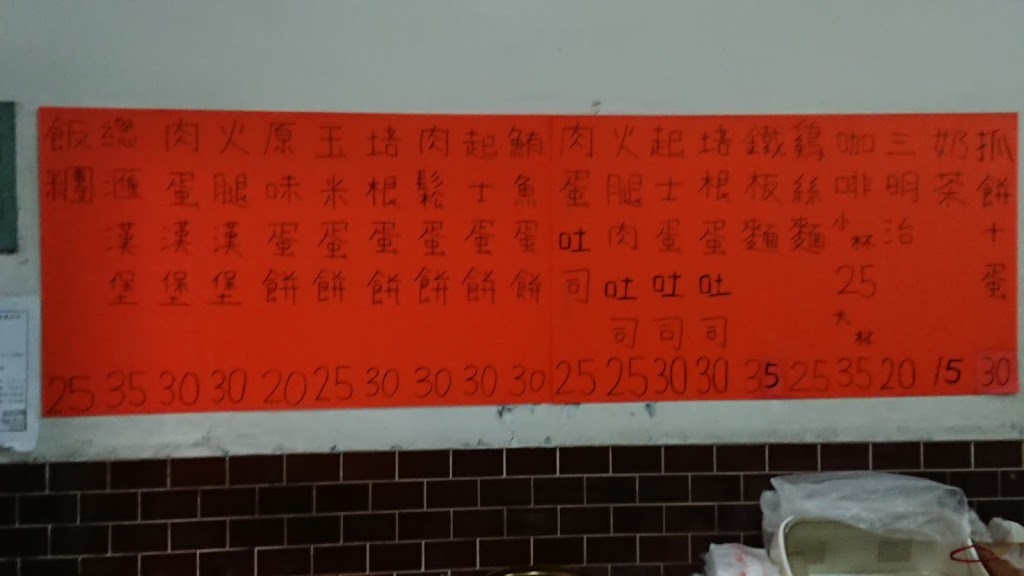 抓餅十蛋 30
奶茶 15
三明治 20
咖啡小杯25大杯 35
鷄絲麵 25
鐵板麵 35
培根蛋吐司 30
起士蛋吐司 30
火腿肉吐司 25
肉蛋吐司 25
鮪魚蛋餅 30
起士蛋餅 30
肉鬆蛋餅 30
培根蛋餅 30
玉米蛋餅 25
原味蛋餅 20
火腿漢堡 30
肉蛋漢堡 30
總滙漢堡 35
飯糰 25